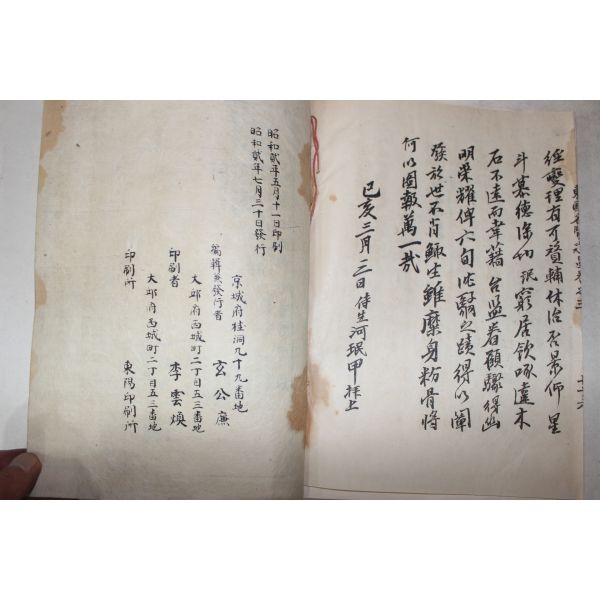 經燮理有可資輔休治否景仰星
斗慕德深切珉窮居飲啄遠木
石不遠而幸藉台監眷顧驥得幽
明榮耀俾六旬
之蹟得以闡
發於世不肖鯫生雖糜身粉骨將
何以圖報萬一哉
己亥三月二日侍生河珉甲拜上
昭和貳年五月十一日印刷
昭和貳年七月三十日發行
京城府桂洞九十九番地
編輯兼發行者 玄公廉
大邱府西城町二丁目五三番地
印刷者 李雲煥
大邱府西城町二丁目五三番地
印刷所 東陽印刷所